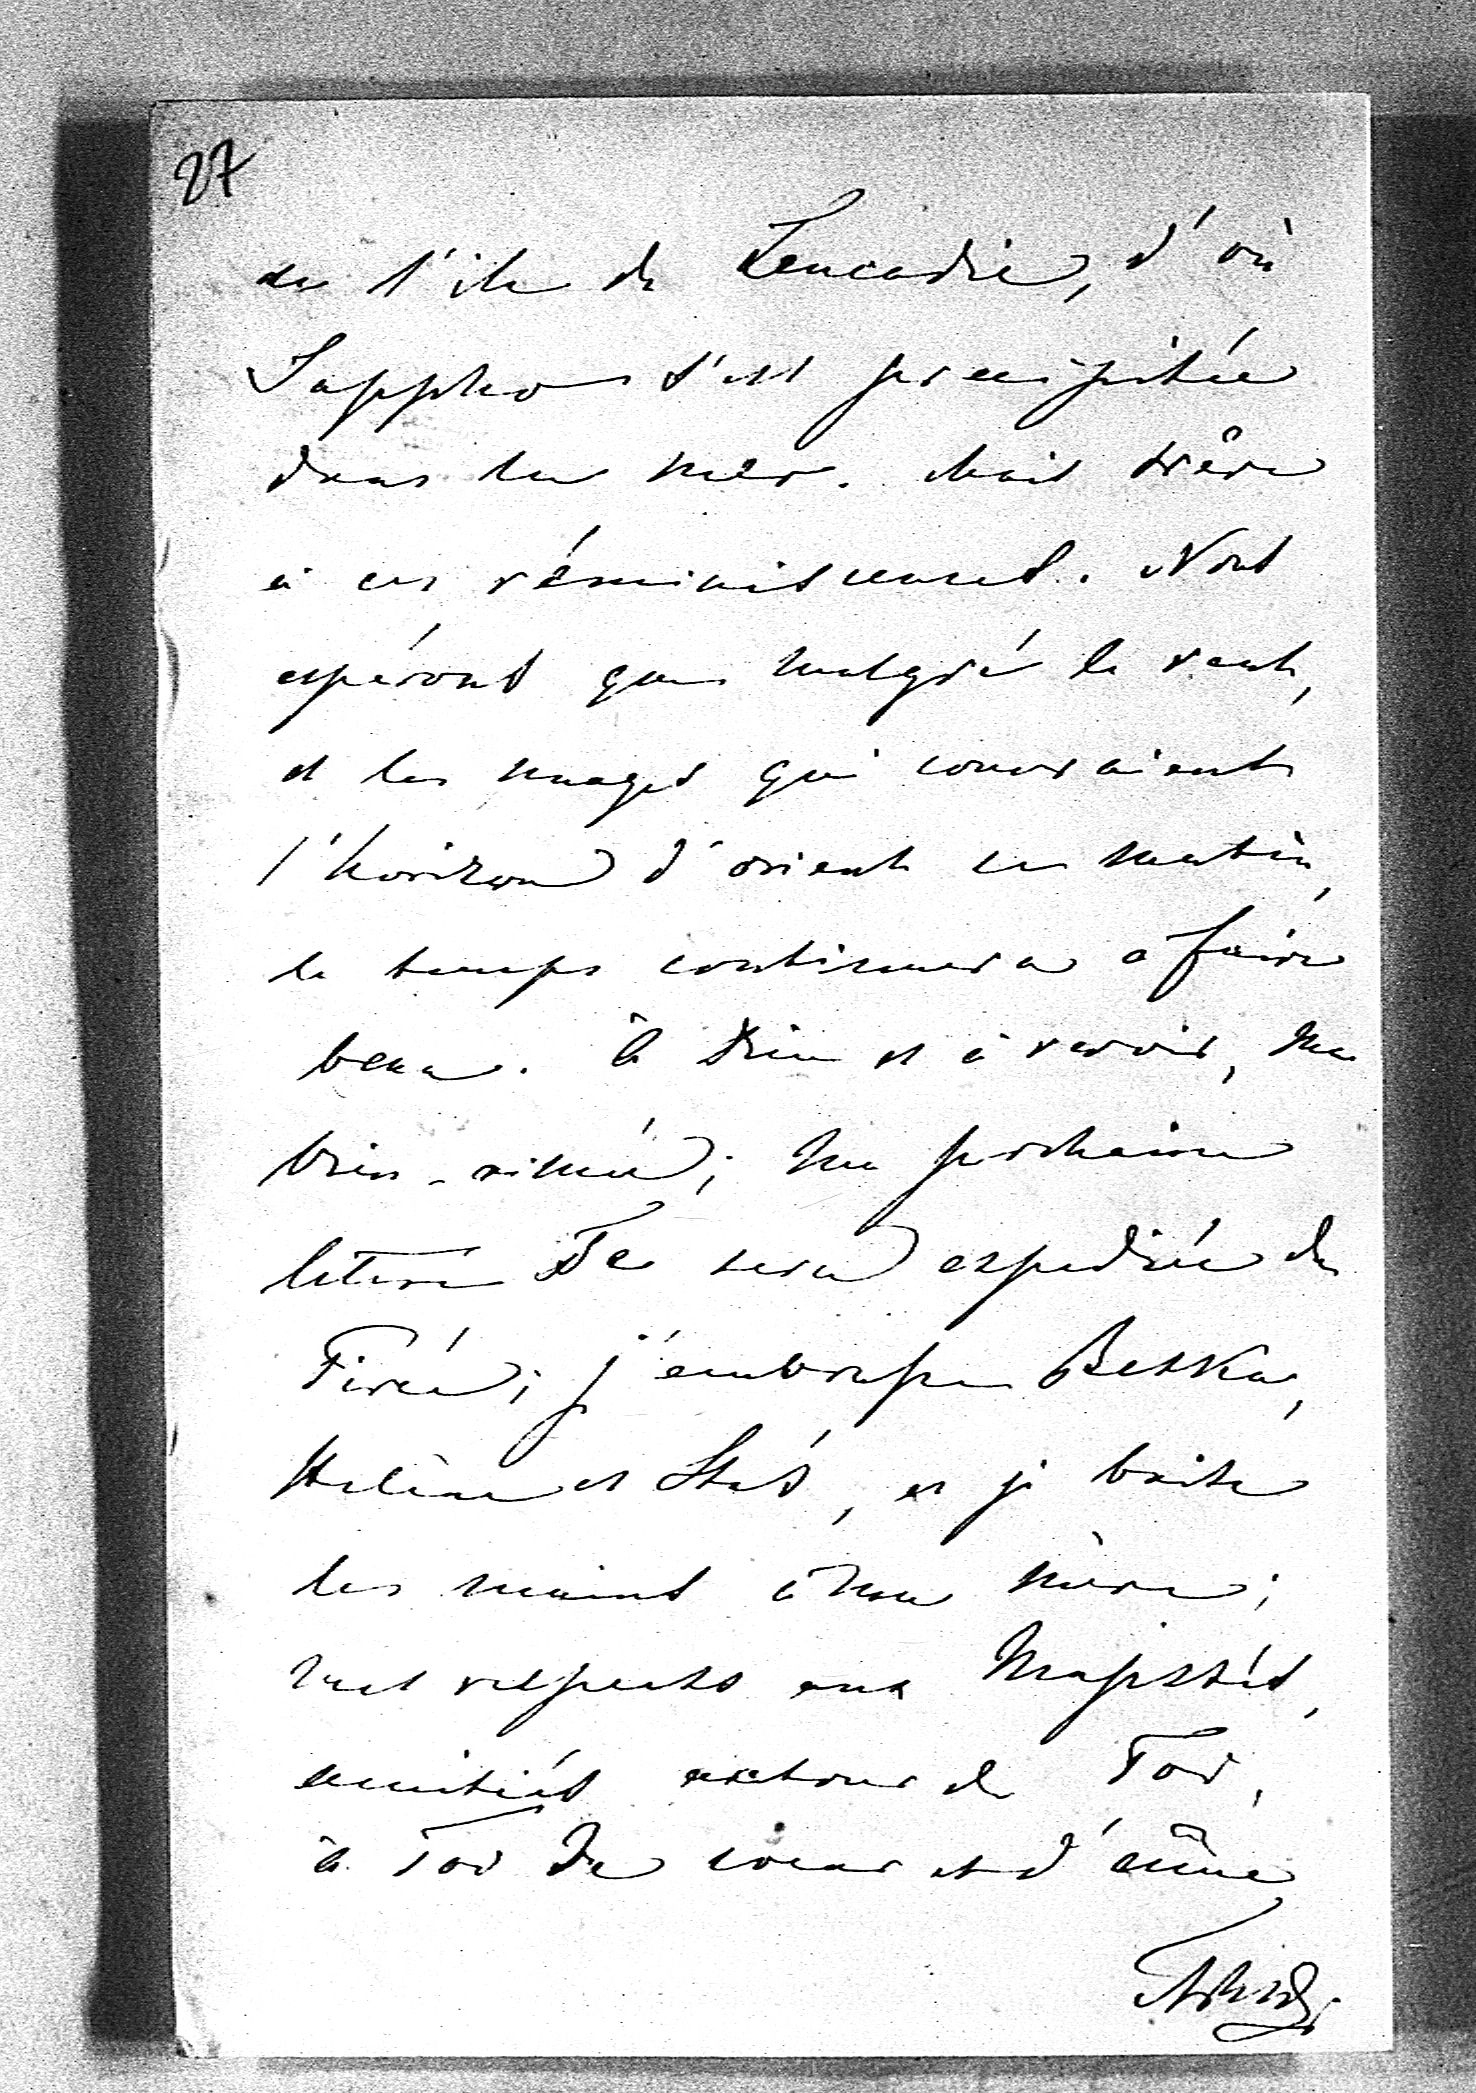 27
de l'ile de Leucadie, d'où
Sappho s'est precipitée
dans la mer. Mais trève
à ces réminiscences. Nous
espérons que malgré le vent,
et les nuages qui couvraient
l'horizon d'orient ce matin,
le temps continuera à faire
beau. à Dieu et à revoir, ma
bien-aimée; ma prochaine
lettre Te sera expediée du
Pirée; j'embrasse Betka,
Helène et Stas, et je baise
les mains à ma mère;
mes respects aux Majestés,
amitiés autour de Toi,
à Toi de coeur et d'âme